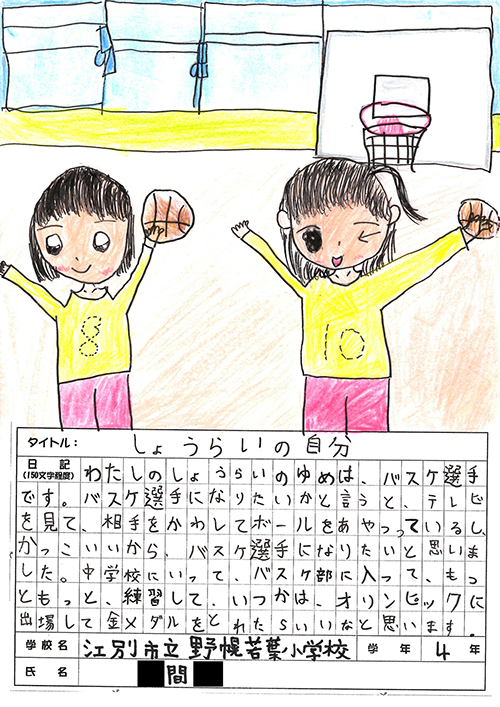 8
10
タイトル: しょうらいの自分
日記
(150文字程度)
わたしのしょうらいのゆめは、バスケ選手
です。バスケ選手になりたいかと言うと、テレビ
を見て、相手をかわしてボールをあやつっているし、
かっこいいから、バスケ選手になりたいと思いま
した。中学校にいって、バスケ部に入って、もっ
ともっと、練習して、いつかは、オリンピックに
出場して金メダルをとれたらいいなと思います。
学校名 江別市立野幌若葉小学校 学年 4年
氏名 間